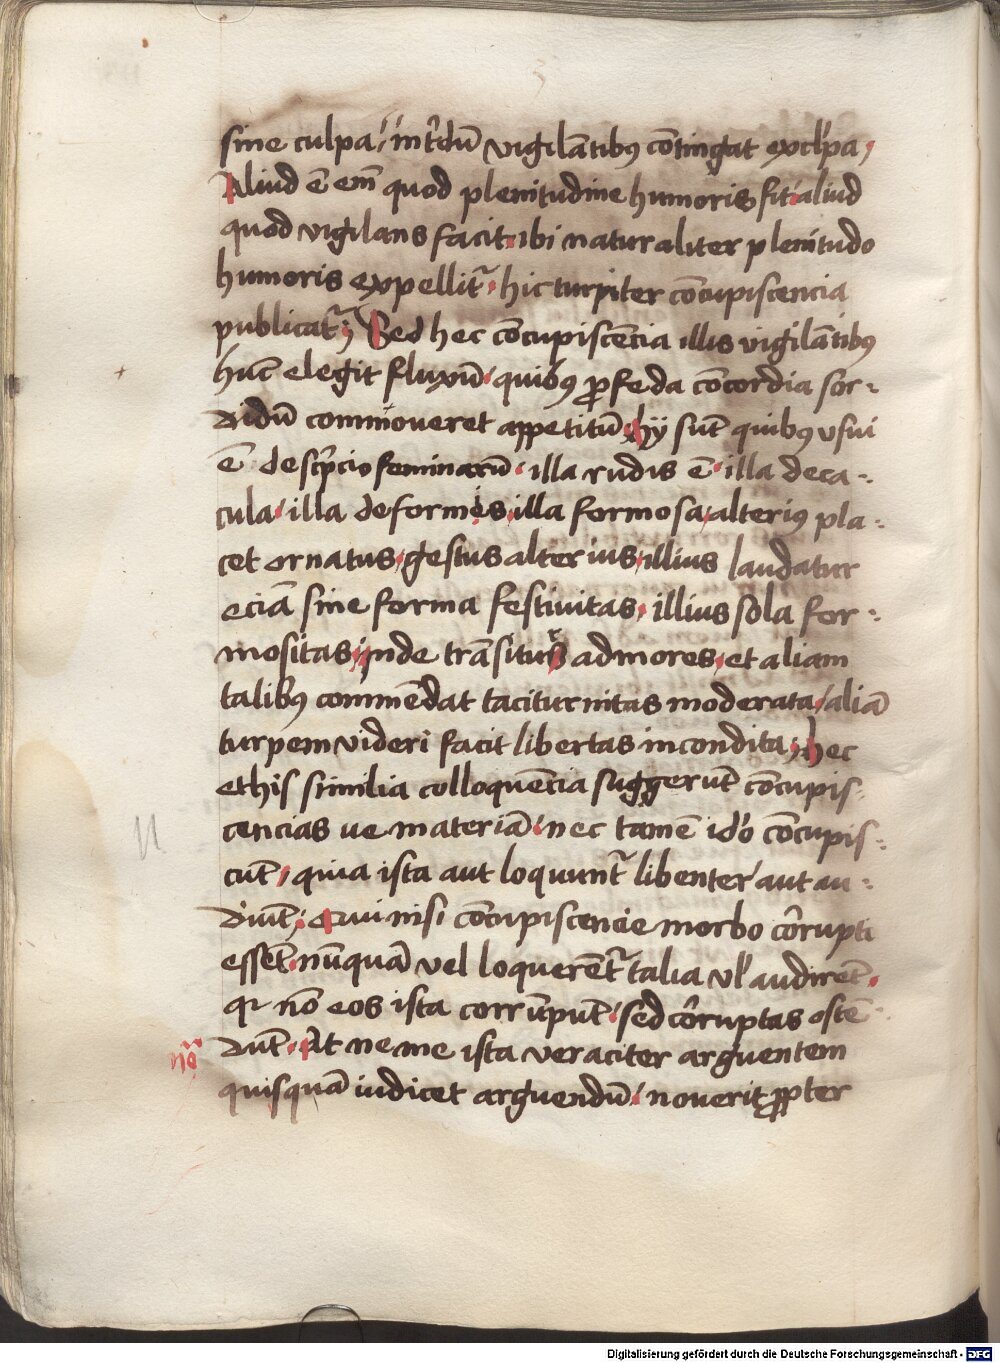 sine culpa / int̄dū vigilātibꝰ cōtingat ex cl̄pa /
Aliud ē em̄ quod plenitudine humoris fit / aliud
quod vigilans facit / ibi naturaliter plenitudo
humoris expellit᷑ / hic turpiter cōcupiscencia
publicat᷑ ; Sed hec cōcupiscēcia illis vigilātibꝰ
hūc elegit fluxū / quibꝰ ꝓ feda cōcordia sor-
didū commoueret appetitū / hij sūt quibꝰ vsui
ē descp̄cio feminarū / illa rudis ē / illa deca-
cula / illa deformis / illa formosa / alteriꝰ pla-
cet ornatus / gestus alterius / illius laudatur
eciā sine forma festiuitas / illius sola for-
mositas / inde trāsitur ad mores / et aliam
talibꝰ commēdat taciturnitas moderata / aliā
turpem videri facit libertas incondita ; hec
et his similia colloquēcia suggerūt cōcupis-
cencias ue materiā / nec tamē id'o cōcupis-
cūt / quia ista aut loquunt᷑ libenter / aut au-
diūt ; Qui nisi cōcupiscencie morbo cōrupti
essēt / nūquā vel loquerēt᷑ talia vl' audirēt /
qꝛ nō eos ista corrūpūt / sed cōruptas ostē-
dūt / At ne me ista veraciter arguentem
quisquā iudicet arguendū / nouerit ꝓpter
nō